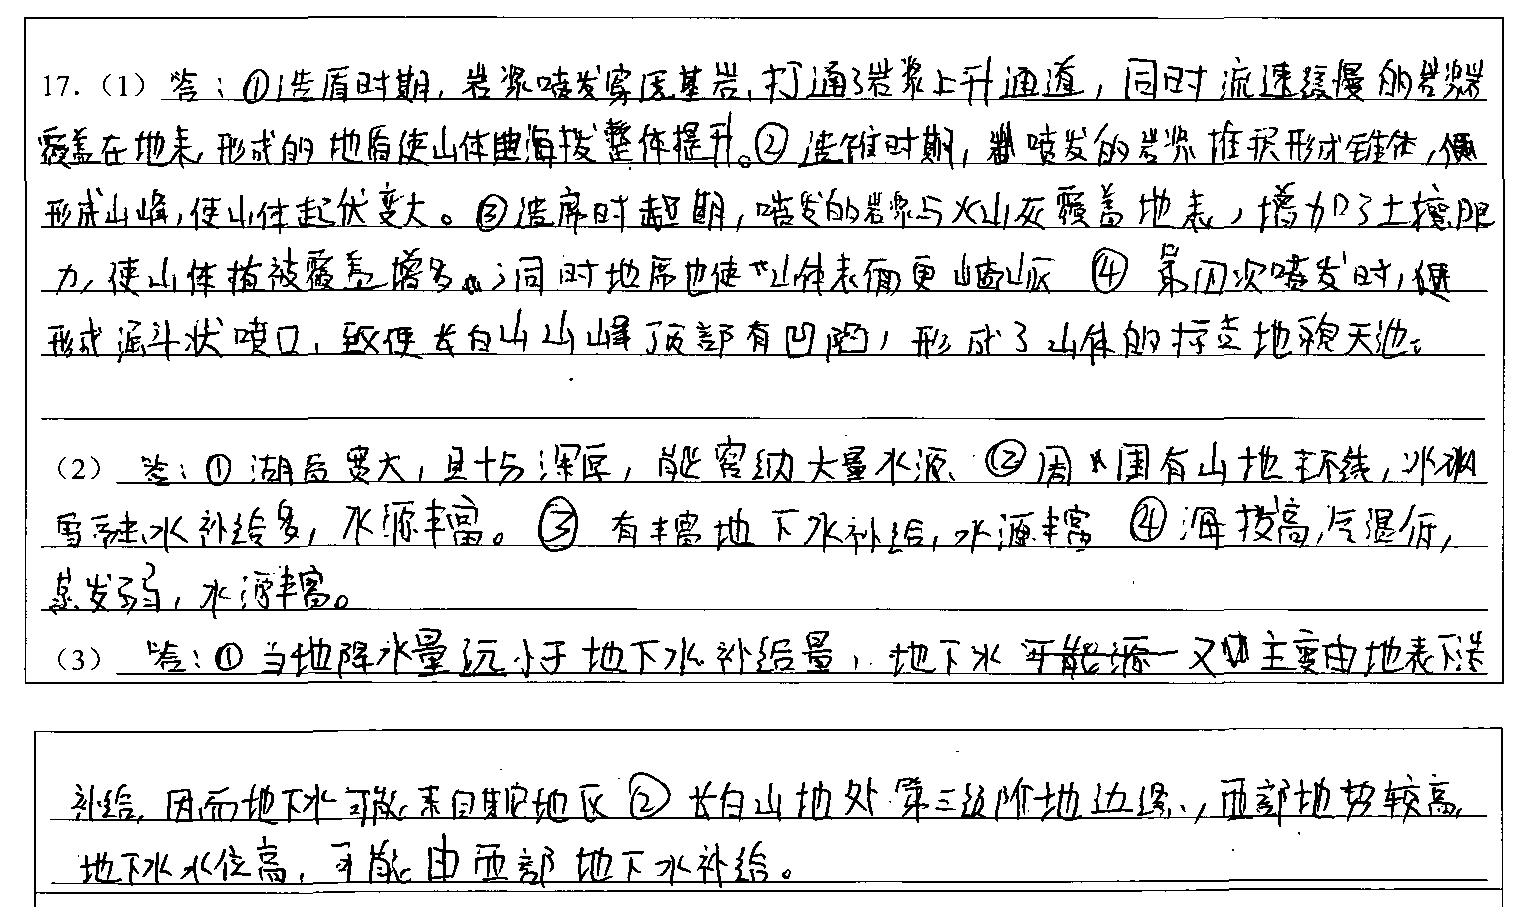 17.（1）答：①造盾时期，岩浆喷发穿医基岩，打通了岩浆上升通道，同时流速缓慢的岩浆
覆盖在地表，形成的地盾使山体海拔整体提升。②造锥时期，喷发的岩浆堆积形成锥体，
形成山峰，使山体起伏变大。③造席时期，喷发的岩浆与火山灰覆盖地表，增加了土壤肥
力，使山体植被覆盖增多；同时地席也使山体表面更崎岖 ④第四次喷发时，
形成漏斗状喷口，致使长白山山峰顶部有凹陷，形成了山体的标志地貌天池。
（2）答：①湖盆宽大，且十分深厚，能容纳大量水源 ②周围有山地环绕，冰
雪融水补给多，水源丰富。③有丰富地下水补给，水源丰富 ④海拔高，气温低，
蒸发弱，水源丰富。
（3）答：①当地降水量远小于地下水补给量，地下水又主要由地表下渗
补给，因而地下水可能来自其它地区 ②长白山地处第三级阶地边缘，西部地势较高，
地下水水位高，可能由西部地下水补给。